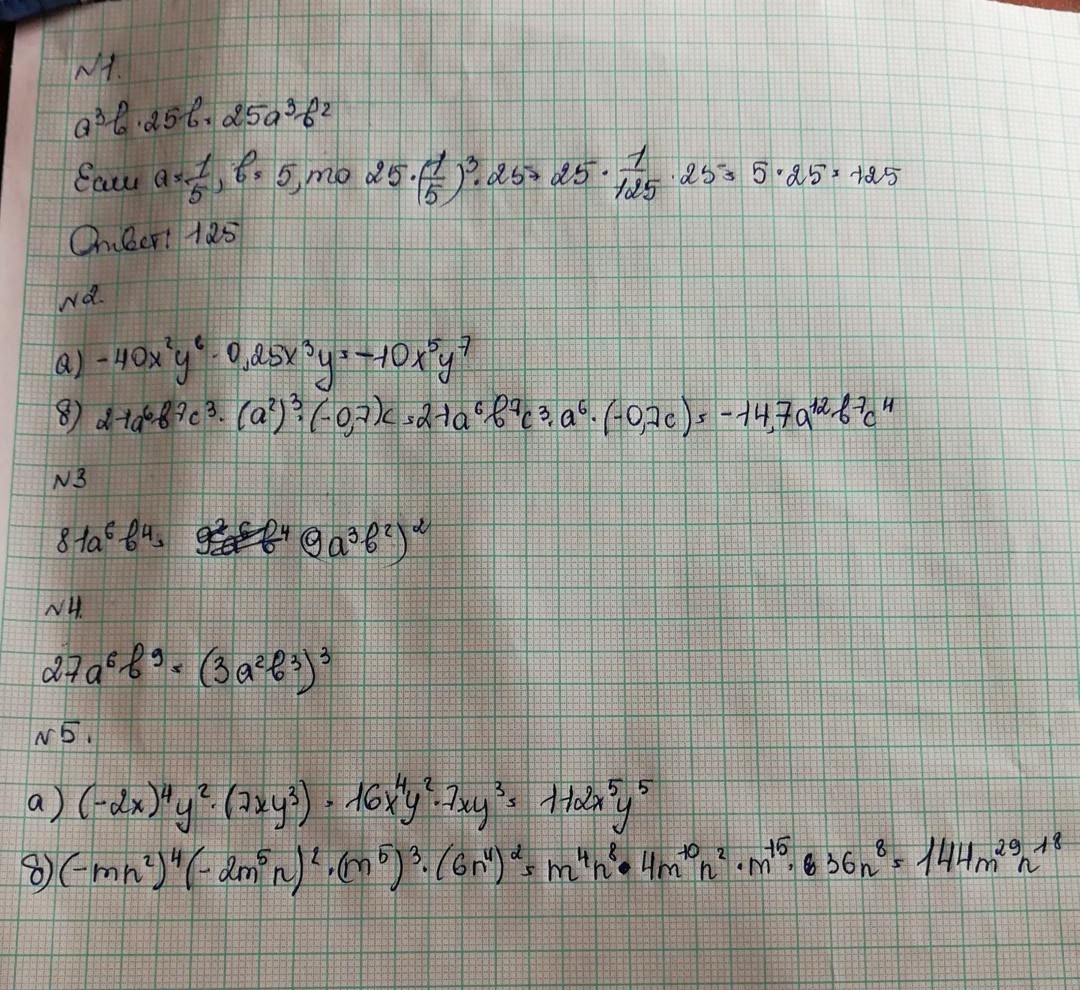 №1.
a³b · 25b = 25a³b²
Если a = 1/5, b = 5, то 25 · (1/5)³ · 25 = 25 · 1/125 · 25 = 5 · 25 = 125
Ответ: 125
№2.
а) -40x²y⁶ · 0,25x³y = -10x⁵y⁷
б) 21a⁶b⁷c³ · (a²)³ · (-0,7)c = 21a⁶b⁷c³ · a⁶ · (-0,7c) = -14,7a¹²b⁷c⁴
№3
81a⁶b⁴ = (9a³b²)²
№4.
27a⁶b⁹ = (3a²b³)³
№5.
а) (-2x)⁴y² · (7xy³) = 16x⁴y² · 7xy³ = 112x⁵y⁵
б) (-mn²)⁴(-2m⁵n)² · (m⁵)³ · (6n⁴)² = m⁴n⁸ · 4m¹⁰n² · m¹⁵ · 36n⁸ = 144m²⁹n¹⁸